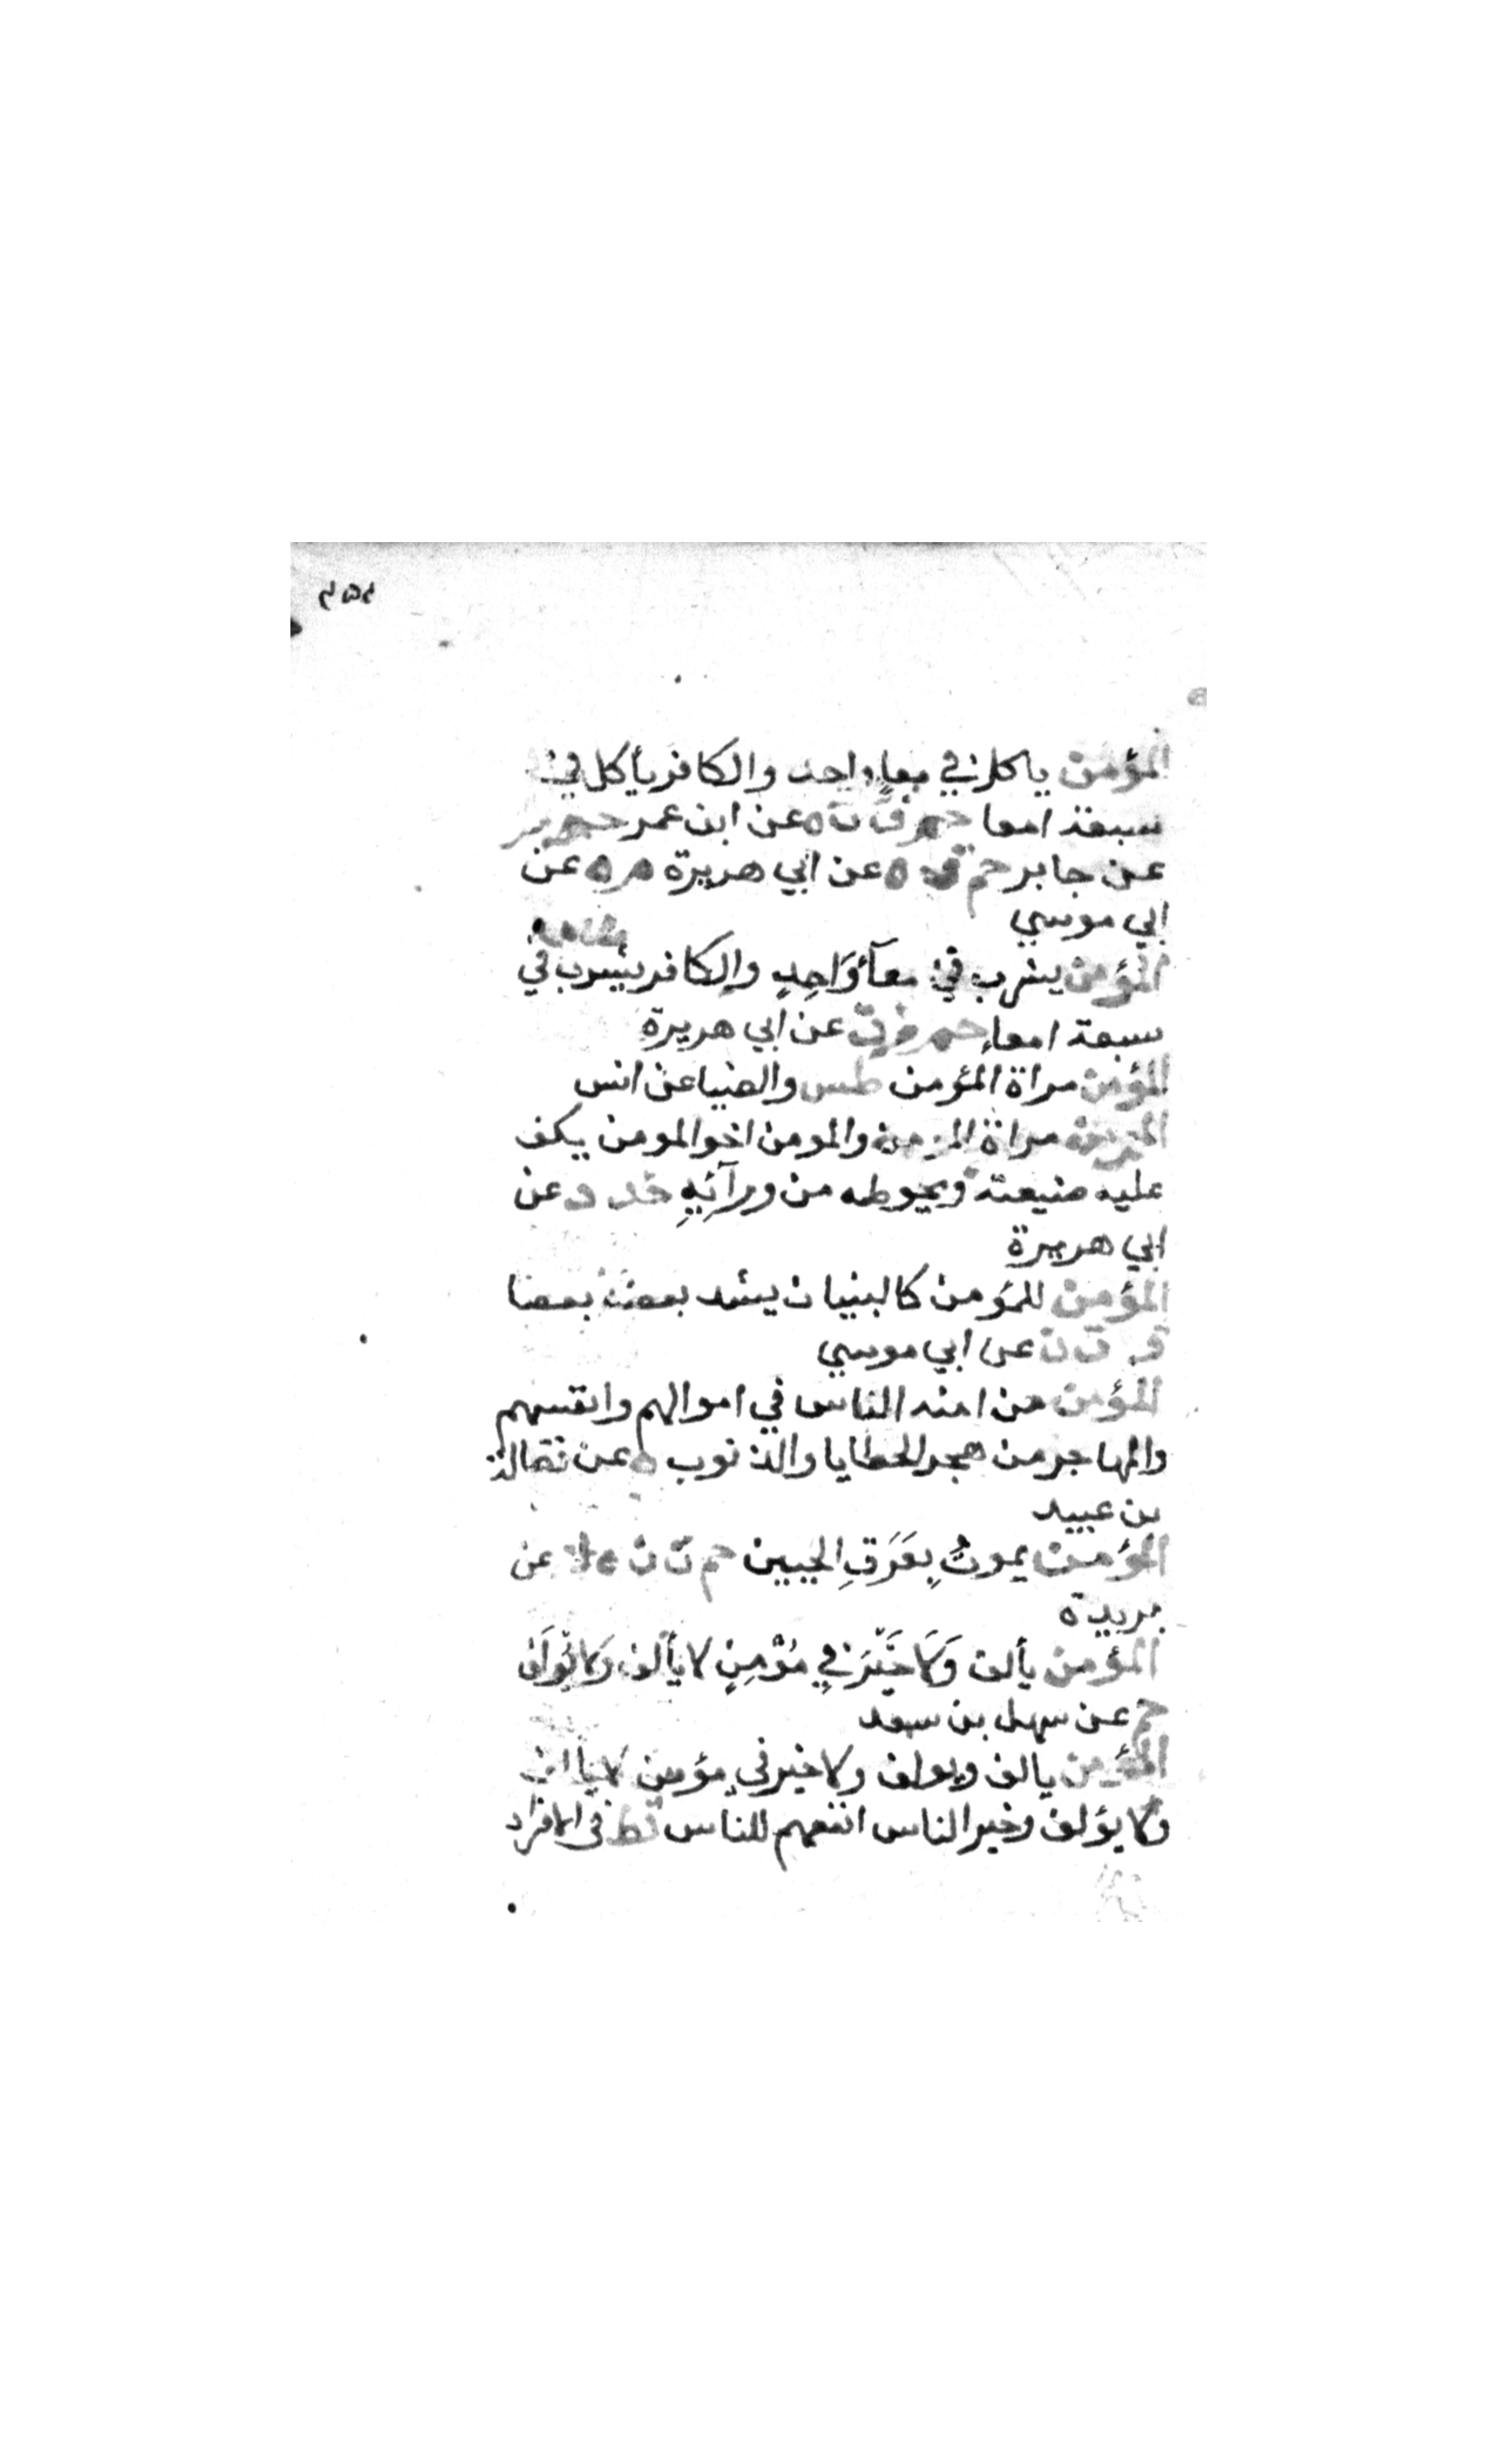 ٤٥٢
المؤمن ياكل في معاٍ واحد والكافر يأكل في
سبعة امعا حم ق ت ه عن ابن عمر حم م
عن جابر حم ق ه عن ابي هريرة م ه عن
ابي موسي
المؤمن يشرب في معآءٍ وَاحِدٍ والكافر يشرب في
سبعة امعاءٍ حم م ت عن ابي هريرة
المؤمن مراة المؤمن طس والضيا عن انس
المؤمن مراة المؤمن والمومن اخو المومن يكف
عليه ضيعته ويحوطه من ورآئِهِ خد د عن
ابي هريرة
المؤمن للمؤمن كالبنيان يشد بعضه بعضا
ق ت ن عن ابي موسي
المؤمن من امنه الناس في اموالهم وانفسهم
والمهاجر من هجر الخطايا والذنوب ه عن فضالة
بن عبيد
المؤمن يموتُ بِعَرَقِ الجبين حم ت ن ه ك عن
بريدة
المؤمن يألف وَلَا خَيْرَ فِي مُؤْمِنٍ لا يألف وَلا يُؤلَف
حم عن سهل بن سعد
المؤمن يالف ويولف ولا خير في مؤمن لا يالف
ولا يؤلف وخير الناس انفعهم للناس قط في الافراد